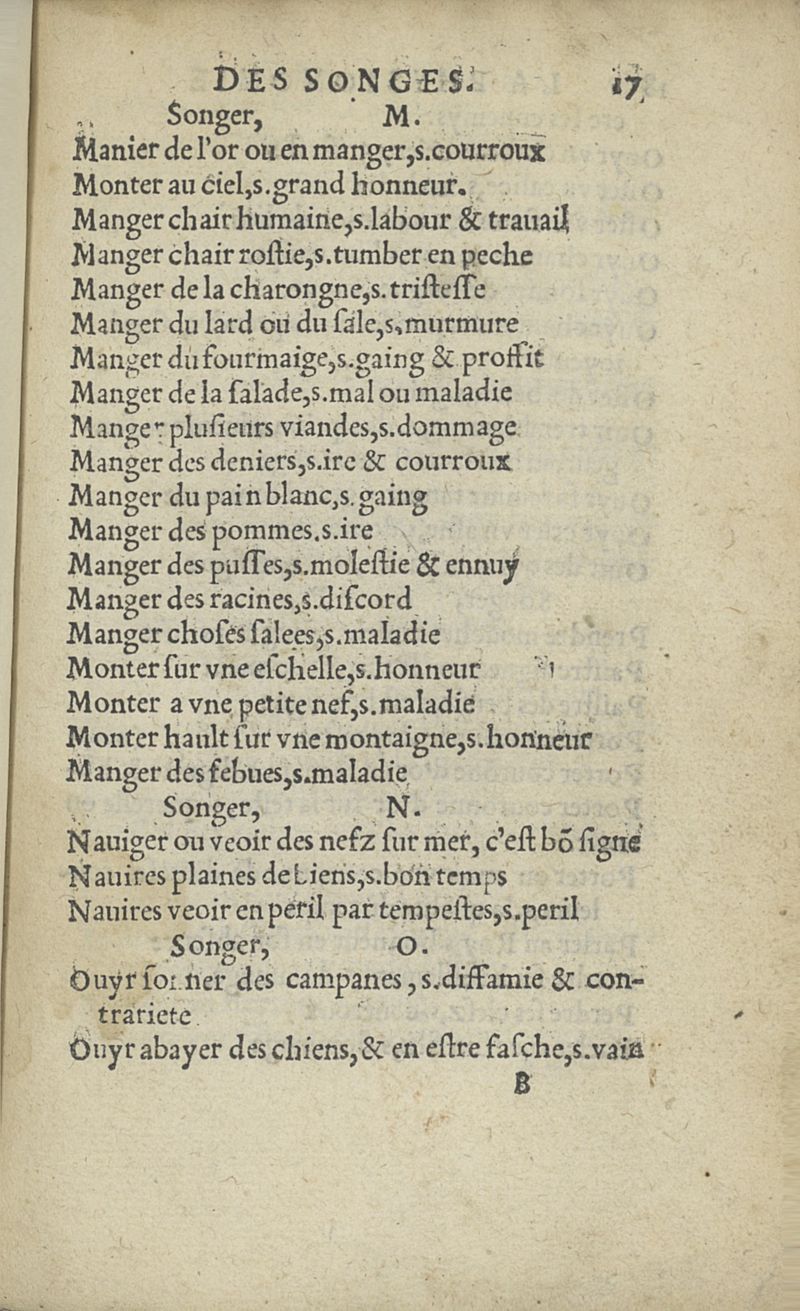 DES SONGES. 17
Songer, M.
Manier de l'or ou en manger,s.courroux
Monter au ciel,s.grand honneur.
Manger chair humaine,s.labour & trauail
Manger chair roſtie,s.tumber en peche
Manger de la charongne,s.triſteſſe
Manger du lard ou du ſale,s.murmure
Manger du fourmaige,s.gaing & proffit
Manger de la ſalade,s.mal ou maladie
Manger pluſieurs viandes,s.dommage
Manger des deniers,s.ire & courroux
Manger du pain blanc,s.gaing
Manger des pommes.s.ire
Manger des puſſes,s.moleſtie & ennuy
Manger des racines,s.diſcord
Manger choſes ſalees,s.maladie
Monter ſur vne eſchelle,s.honneur
Monter a vne petite nef,s.maladie
Monter hault ſur vne montaigne,s.honneur
Manger des febues,s.maladie
Songer, N.
Nauiger ou veoir des nefz ſur mer, c'eſt bõ ſigne
Nauires plaines de biens,s.bon temps
Nauires veoir en peril par tempeſtes,s.peril
Songer, O.
Ouyr ſonner des campanes, s.diffamie & con-
trariete
Ouyr abayer des chiens,& en eſtre faſche,s.vain
B